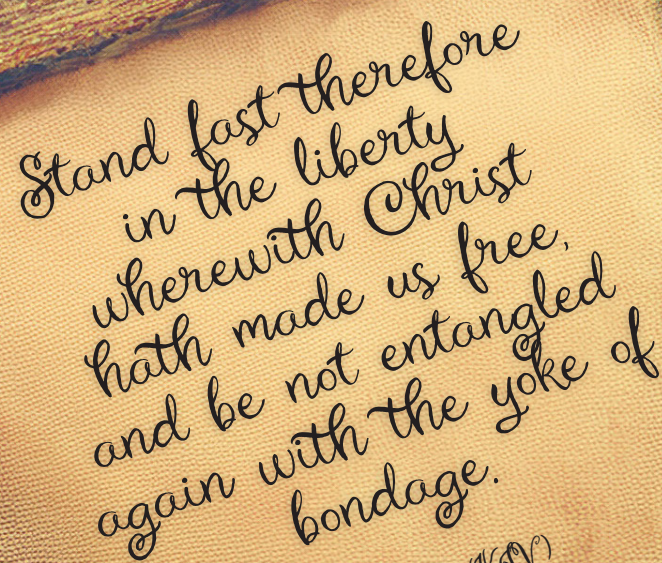 Stand fast therefore
in the liberty
wherewith Christ
hath made us free,
and be not entangled
again with the yoke of
bondage.